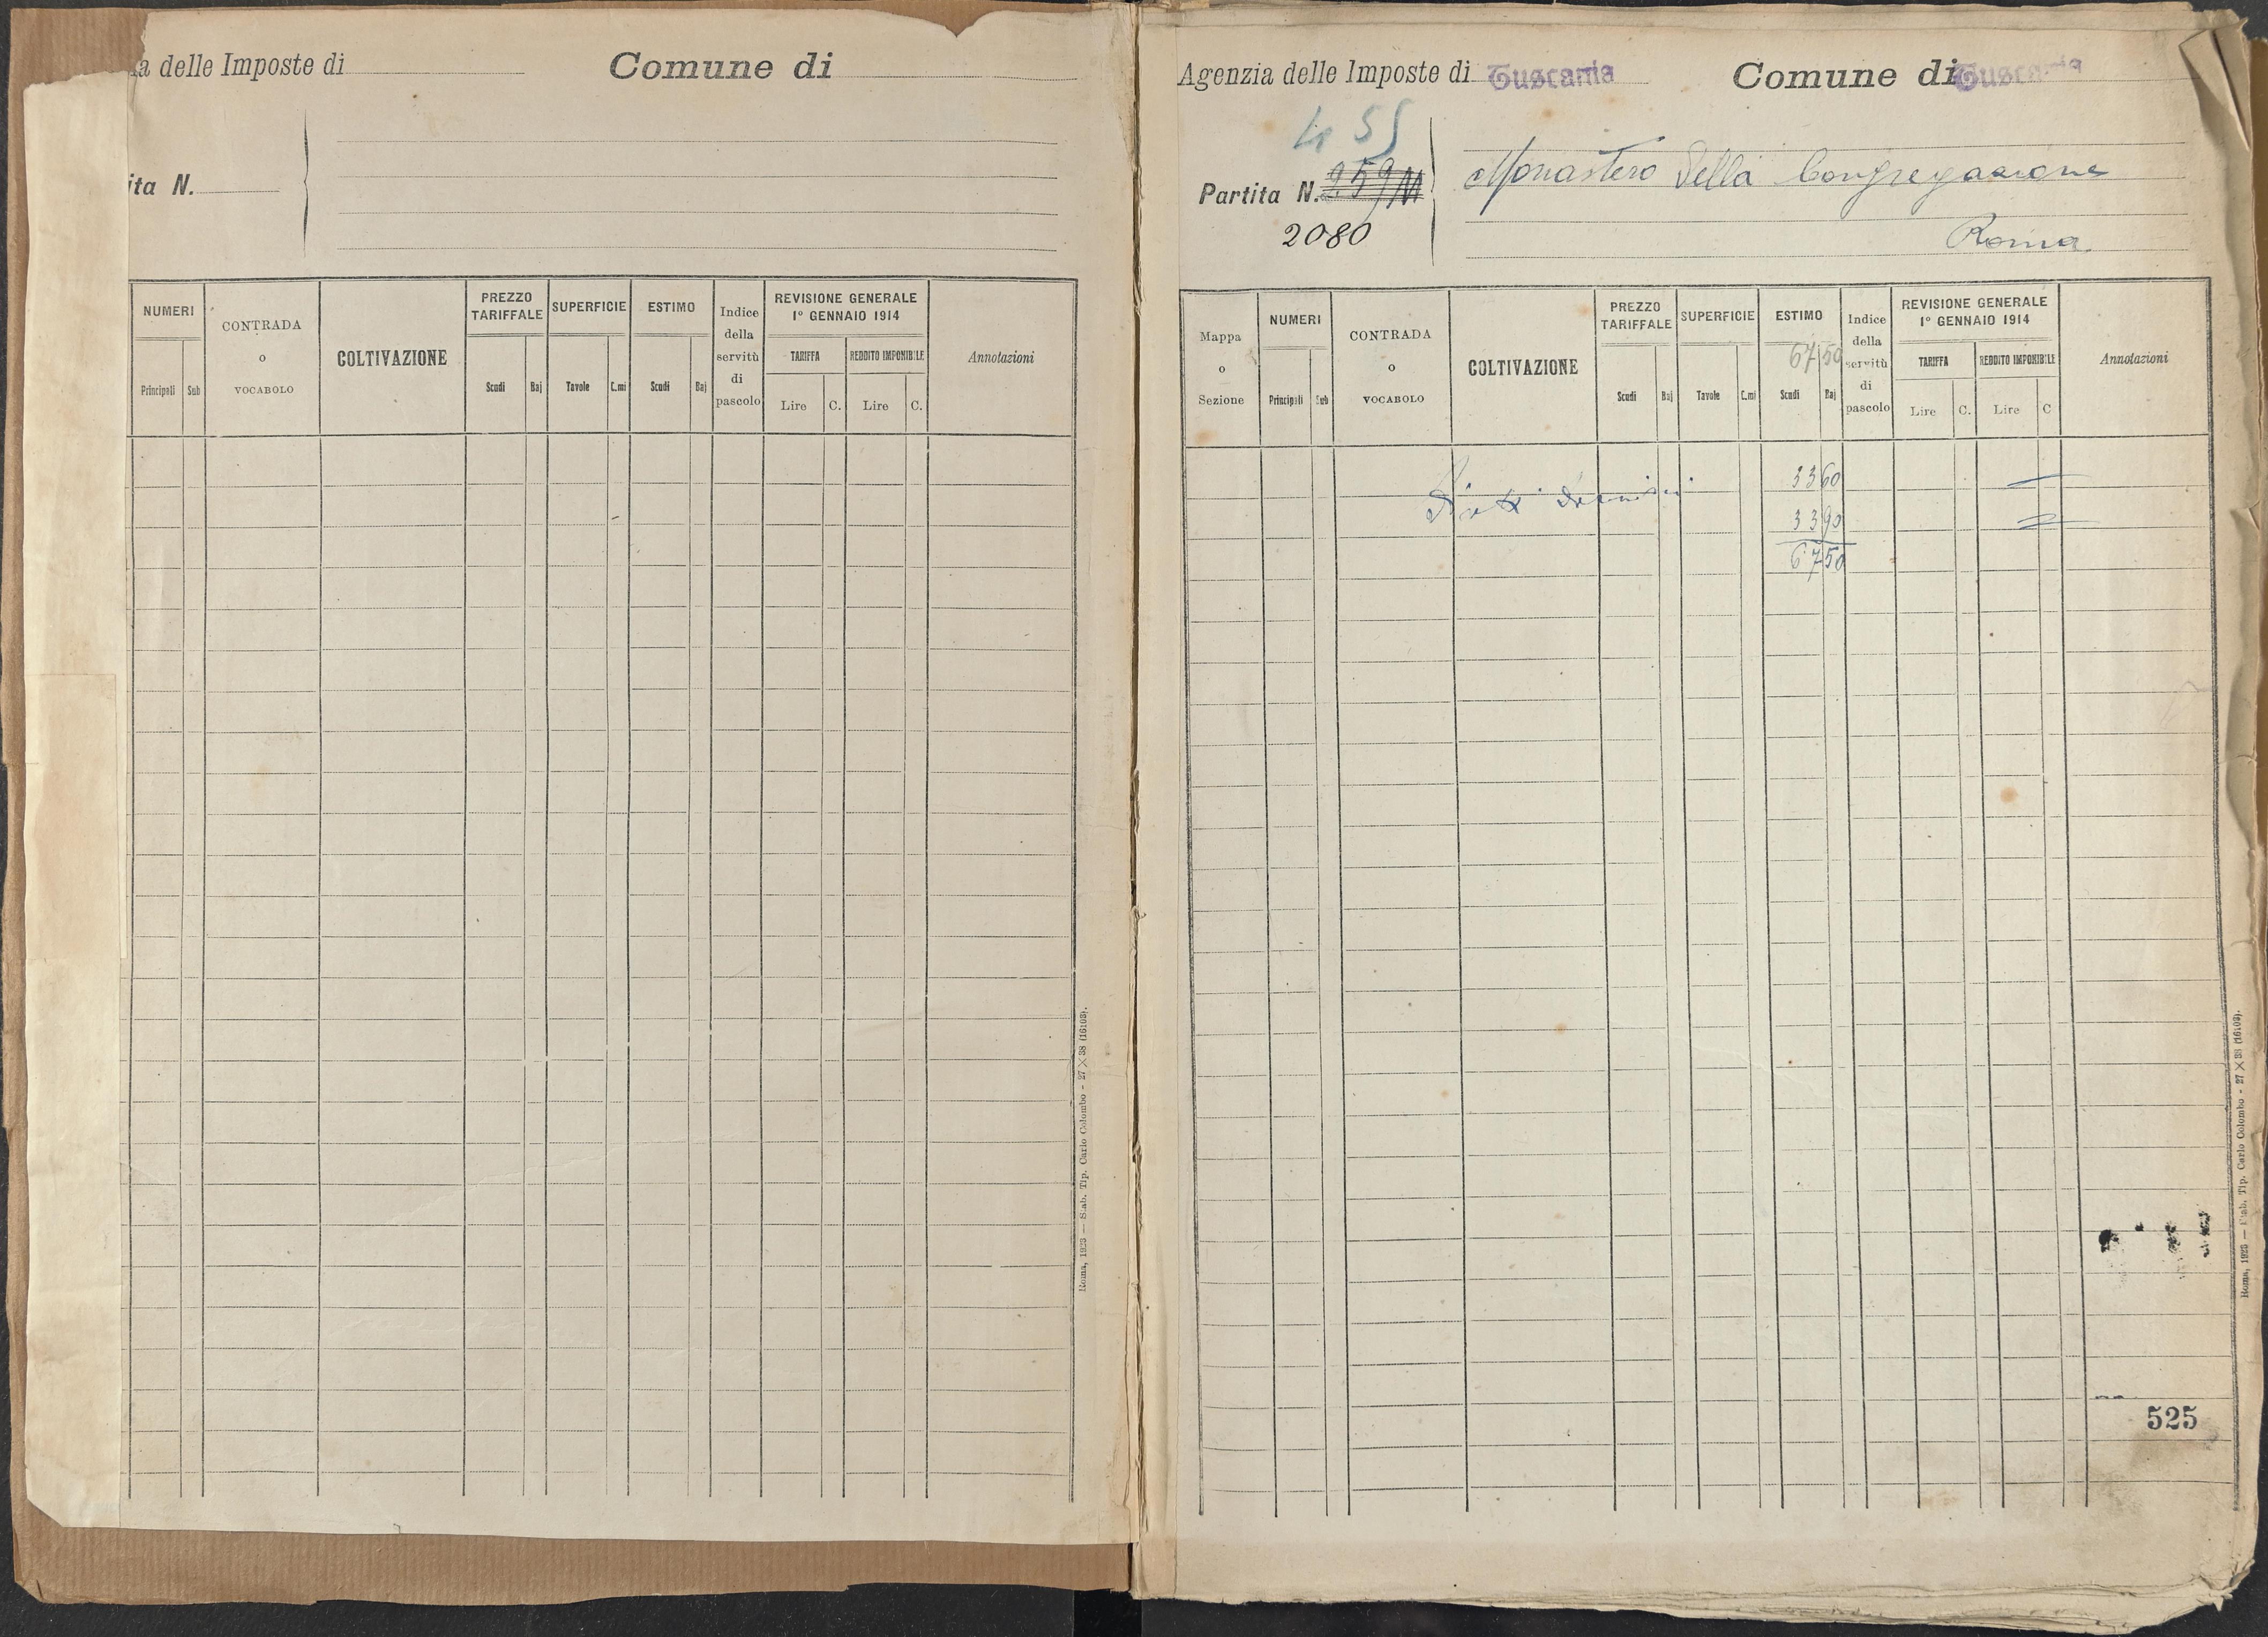 delle Imposte di Comune di
ita N.
NUMERI
Principali Sub
CONTRADA
o
VOCABOLO
COLTIVAZIONE
PREZZO
TARIFFALE
Scudi Baj
SUPERFICIE
Tavole C.mi
ESTIMO
Scudi Baj
Indice
della
servitù
di
pascolo
REVISIONE GENERALE
1° GENNAIO 1914
TARIFFA REDDITO IMPONIBILE
Lire C. Lire C.
Annotazioni
Roma, 1923 — Stab. Tip. Carlo Colombo - 27 × 38 (16103).
Agenzia delle Imposte di Tuscania Comune di Tuscania
455
Partita N. 259M
2080
Monastero della Congregazione
Roma
Mappa
o
Sezione
NUMERI
Principali Sub
CONTRADA
o
VOCABOLO
COLTIVAZIONE
PREZZO
TARIFFALE
Scudi Baj
SUPERFICIE
Tavole C.mi
ESTIMO
67 50
Scudi Baj
Indice
della
servitù
di
pascolo
REVISIONE GENERALE
1° GENNAIO 1914
TARIFFA REDDITO IMPONIBILE
Lire C. Lire C
Annotazioni
33 60
33 90
67 50
Roma, 1923 — Stab. Tip. Carlo Colombo - 27 × 38 (16103).
525